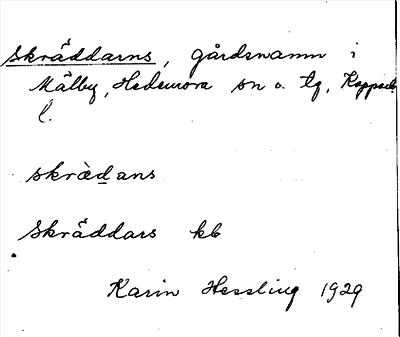 Skräddarns, gårdsnamn i
Mälby, Hedemora sn o. tg, Kopparb.
l.
skrädans
Skräddars kb
Karin Hessling 1929